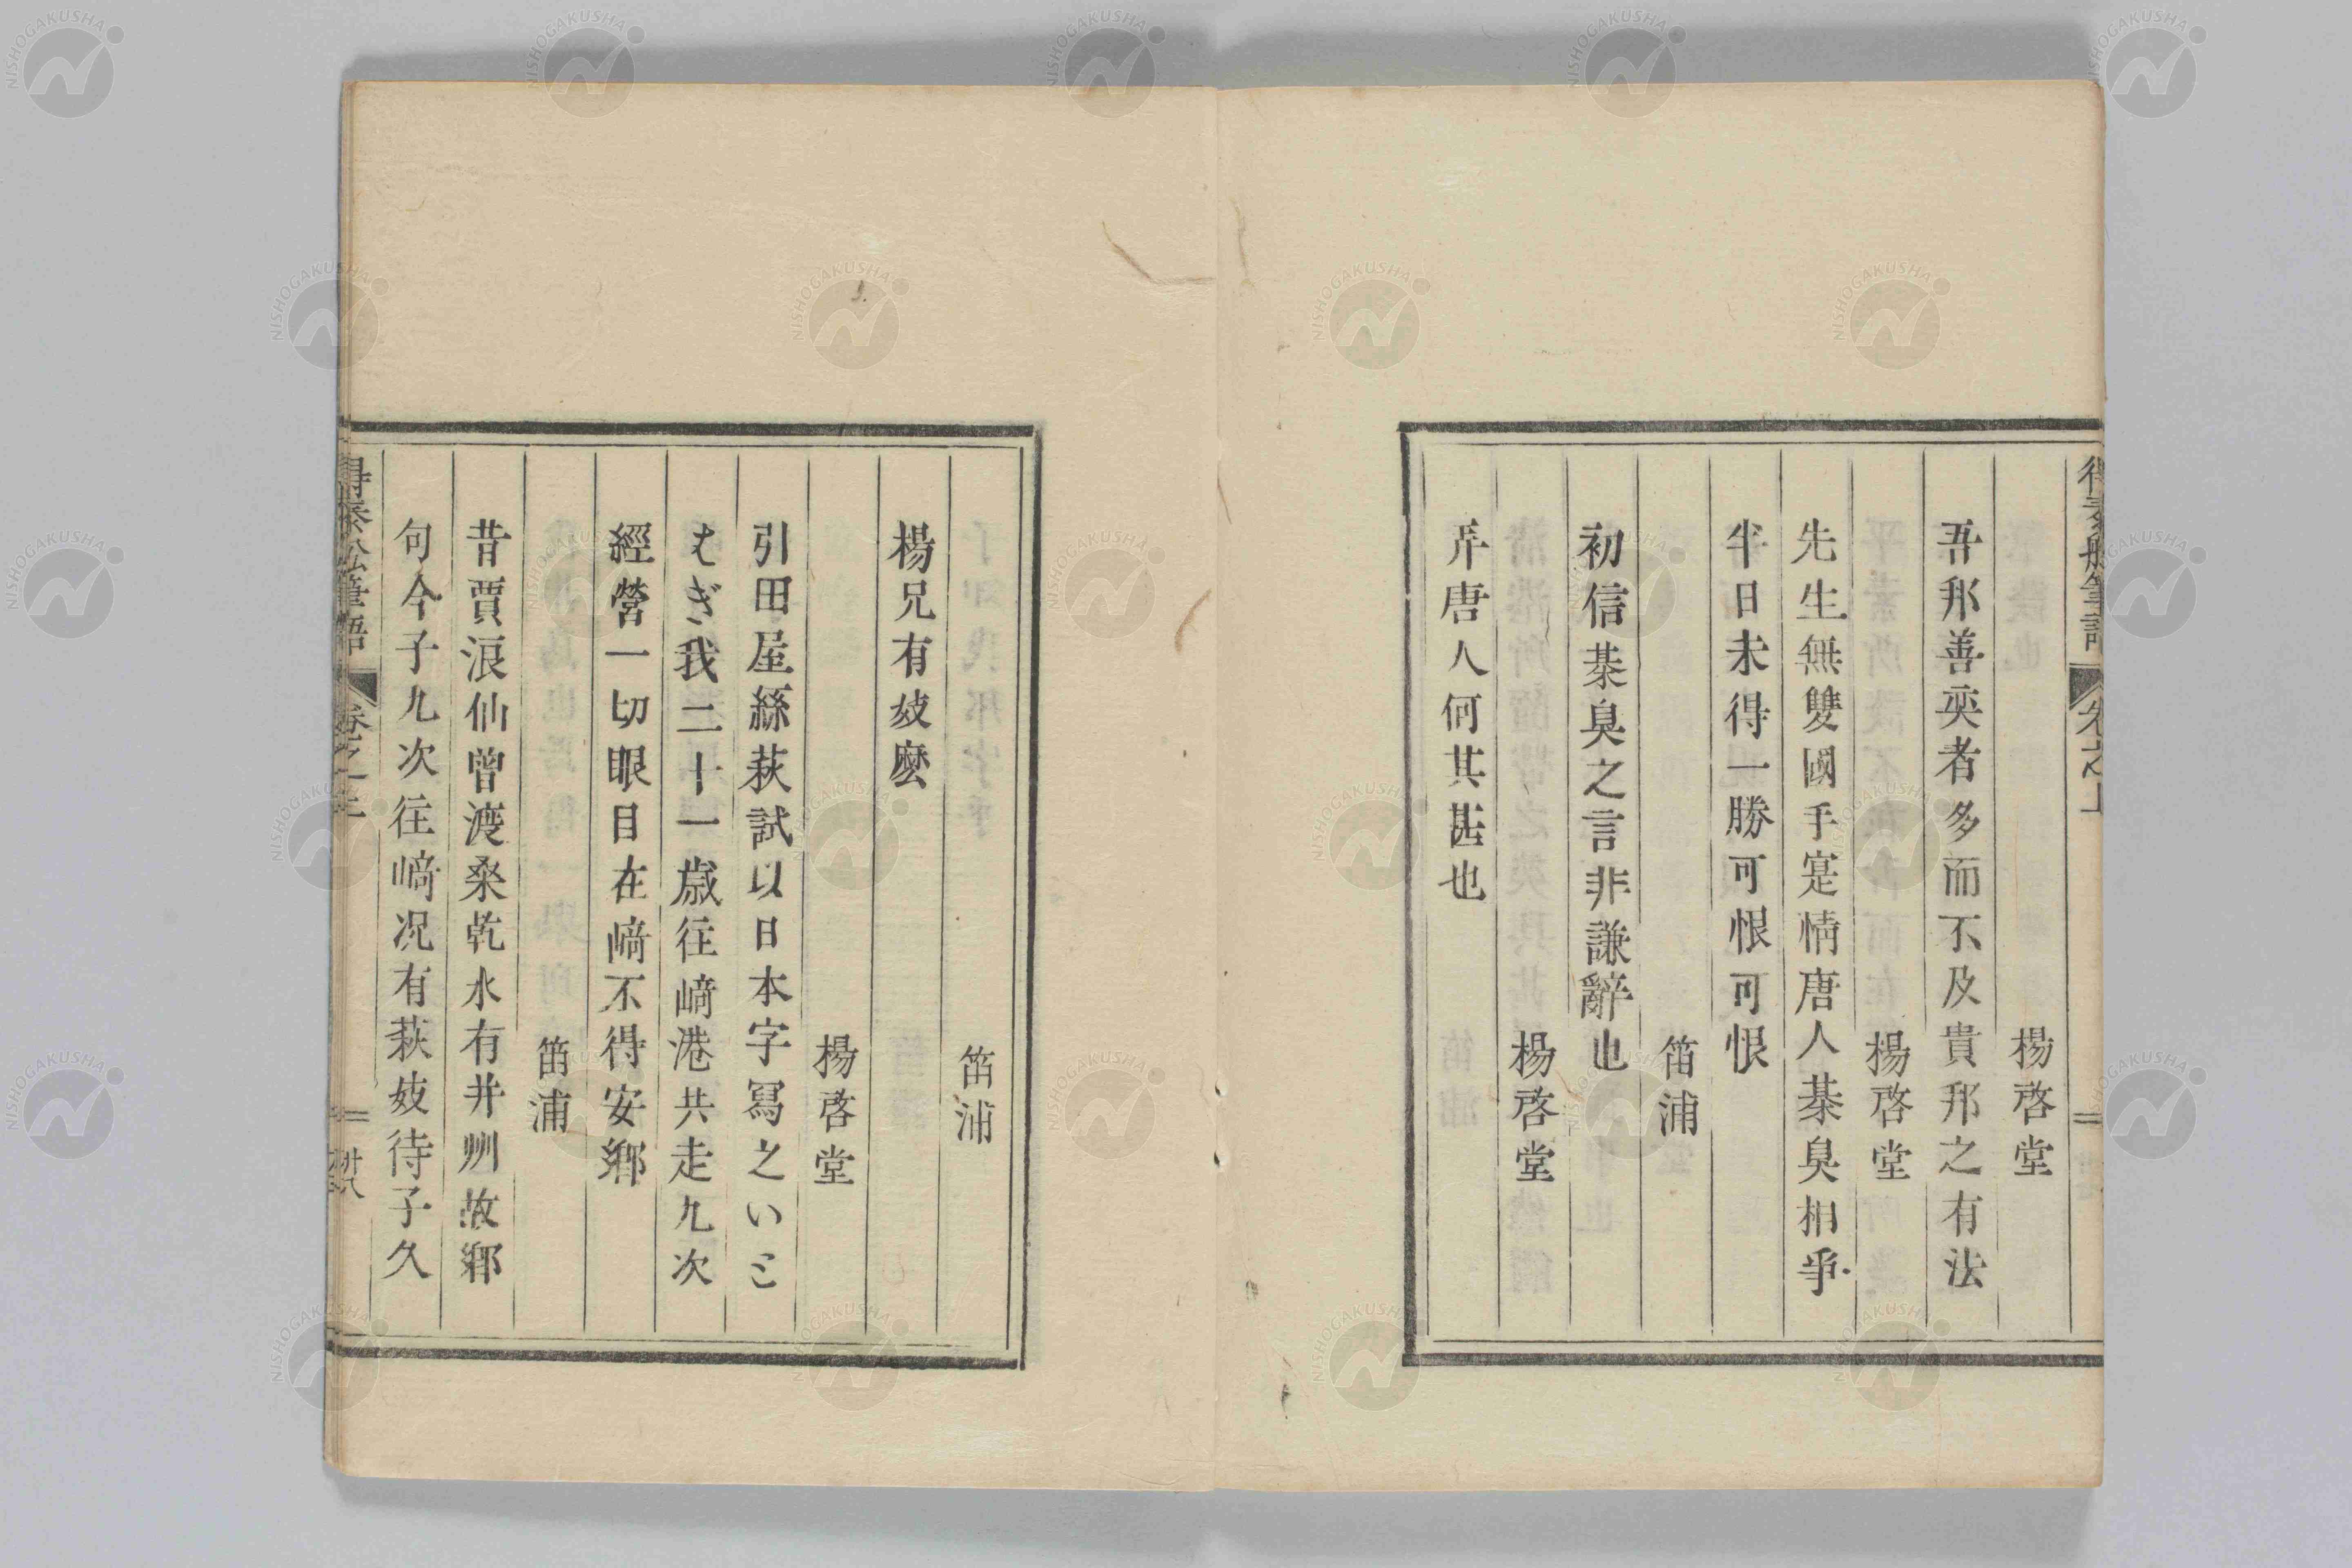 楊啓堂
吾邦善奕者多而不及貴邦之有法
楊啓堂
先生無雙國手寔情唐人棊臭相爭
半日未得一勝可恨可恨
笛浦
初信棊臭之言非謙辭也
楊啓堂
斥唐人何其甚也
笛浦
楊兄有妓麽
楊啓堂
引田屋絲萩試以日本字冩之いと
はぎ我二十一歳往﨑港共走九次
經營一切眼目在﨑不得安鄉
笛浦
昔賈浪仙曾渡桒乾水有并州故鄉
句今子九次往﨑况有萩妓待子久
得泰舩筆語
卷之上
廿八
NISHOGAKUSHA